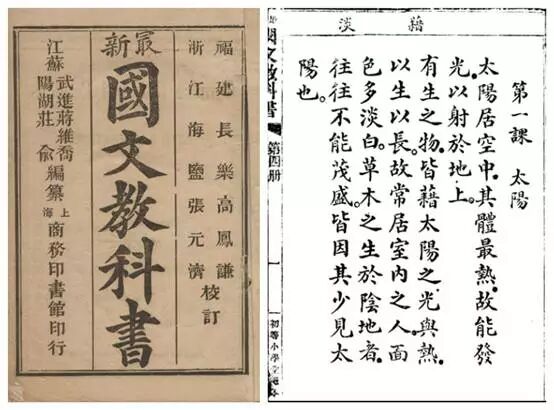 福建長樂高鳳謙
浙江海鹽張元濟
校訂
最新
國文教科書
江蘇
武進蔣維喬
陽湖莊俞
編纂
上海
商務印書館印行
藉 淡
第一課 太陽
太陽居空中。其體最熱。故能發
光以射於地上。
有生之物。皆藉太陽之光與熱。
以生以長。故常居室內之人。面
色多淡白。草木之生於陰地者。
往往不能茂盛。皆因其少見太
陽也。
國文教科書
第四册
一
初等小學堂